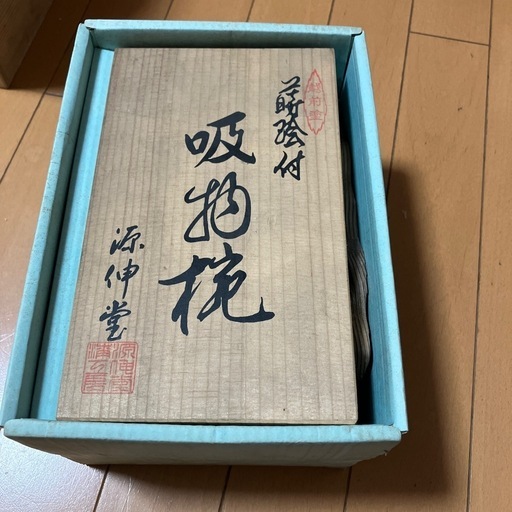 蒔絵付
吸物椀
源伸堂